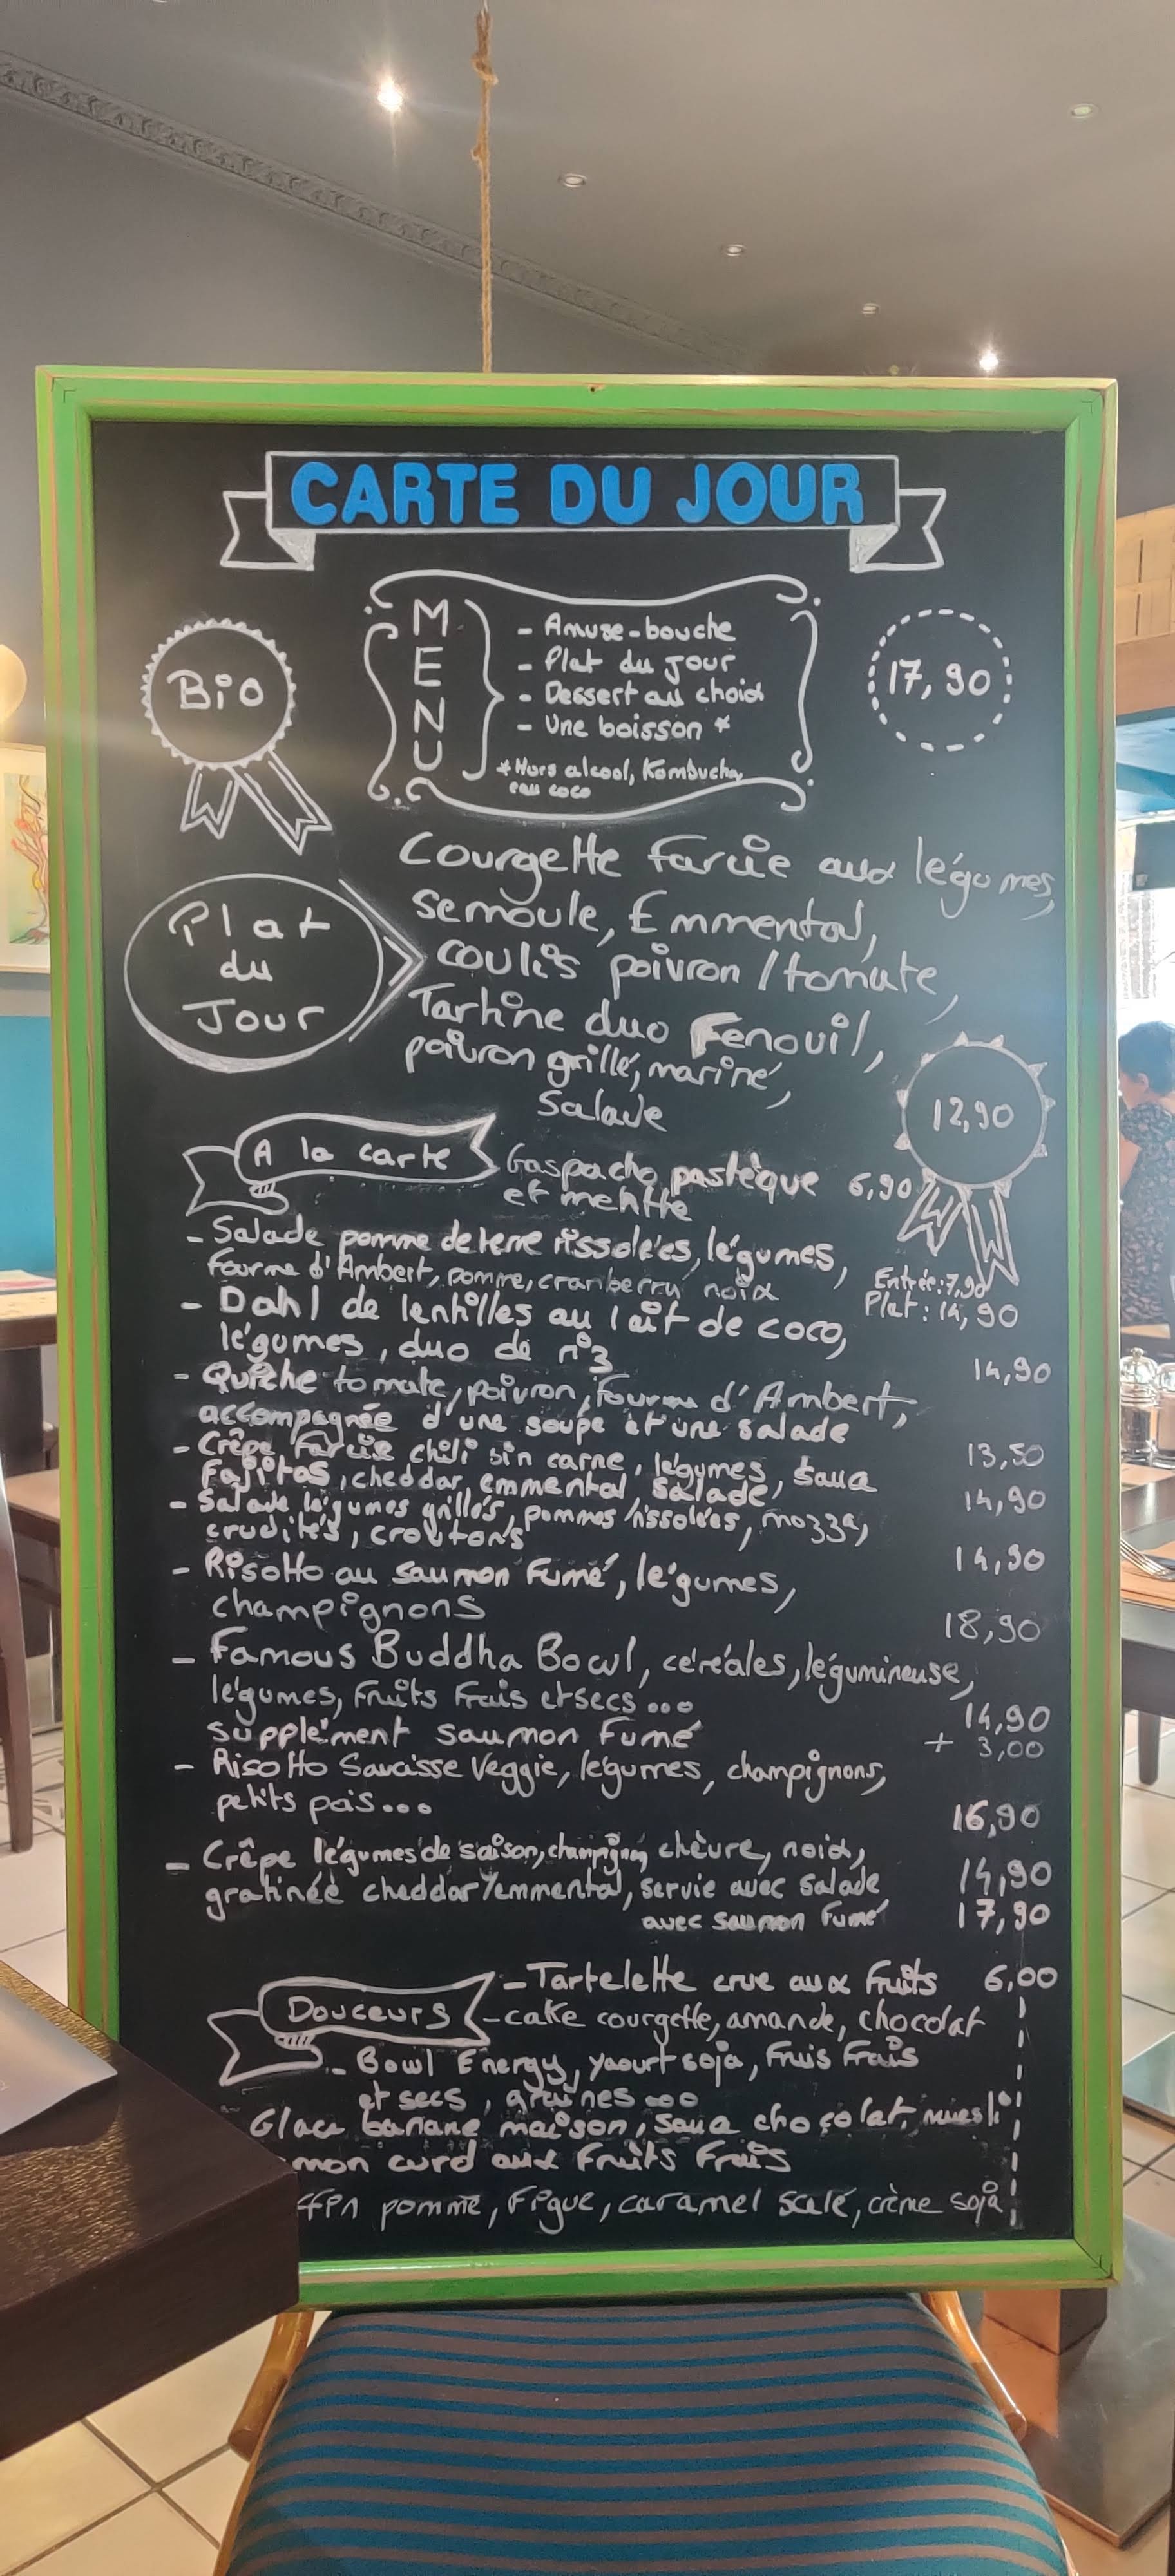 CARTE DU JOUR
Bio
MENU
- Amuse-bouche
- Plat du jour
- Dessert au choix
- Une boisson *
*Hors alcool, Kombucha,
eau coco
17,90
Plat
du
Jour
Courgette farcie aux légumes,
semoule, Emmental,
coulis poivron / tomate,
Tartine duo Fenouil,
poivron grillé, mariné,
Salade
12,90
A la carte
Gaspacho pastèque 6,90
et menthe
- Salade pomme de terre rissolées, légumes,
fourme d'Ambert, pomme, cranberry noix
Entrée: 7,90
Plat: 14,90
- Dahl de lentilles au lait de coco,
légumes, duo de riz
14,90
- Quiche tomate, poivron, fourme d'Ambert,
accompagnée d'une soupe et une salade
13,50
- Crêpe farcie chili sin carne, légumes, sauce
Fajitas, cheddar, emmental, salade,
14,90
- Salade légumes grillés, pommes rissolées, mozza,
crudités, croutons
14,90
- Risotto au saumon Fumé, légumes,
champignons
18,90
- Famous Buddha Bowl, céréales, légumineuse,
légumes, Fruits Frais et secs ...
14,90
supplément saumon Fumé + 3,00
- Risotto Saucisse Veggie, légumes, champignons,
petits pois...
16,90
- Crêpe légumes de saison, champignons, chèvre, noix,
gratinée cheddar/emmental, servie avec salade 14,90
avec saumon Fumé 17,90
Douceurs
- Tartelette crue aux Fruits 6,00
- cake courgette, amande, chocolat
- Bowl Energy, yaourt soja, Fruis Frais
et secs, graines ...
Glace banane maison, sauce chocolat, muesli
mon curd aux Fruits Frais
pomme, Figue, caramel salé, crème soja